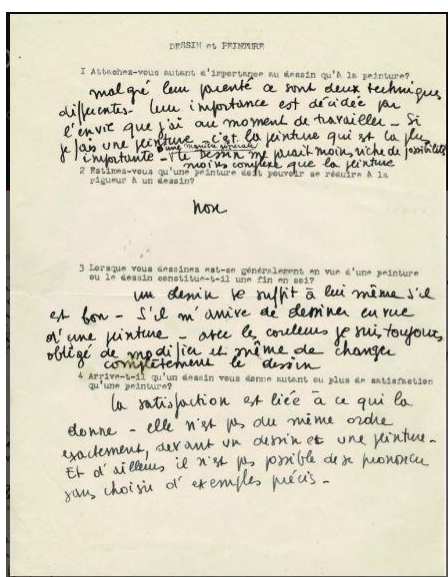 DESSIN et PEINTURE
I Attachez-vous autant d'importance au dessin qu'à la peinture?
malgré leur parenté ce sont deux techniques
différentes - leur importance est décidée par
l'envie que j'ai au moment de travailler - Si
je fais une peinture c'est la peinture qui est la plus
importante - d'une manière générale le dessin me paraît moins riche de possibilités
moins complexe que la peinture
2 Estimez-vous qu'une peinture doit pouvoir se réduire à la
rigueur à un dessin?
non
3 Lorsque vous dessinez est-ce généralement en vue d'une peinture
ou le dessin constitue-t-il une fin en soi?
un dessin se suffit à lui même s'il
est bon - S'il m'arrive de dessiner en vue
d'une peinture - avec les couleurs je suis toujours
obligé de modifier et même de changer
complètement le dessin
4 Arrive-t-il qu'un dessin vous donne autant ou plus de satisfaction
qu'une peinture?
la satisfaction est liée à ce qui la
donne - elle n'est pas du même ordre
exactement, devant un dessin et une peinture.
Et d'ailleurs il n'est pas possible de se prononcer
sans choisir d'exemples précis -